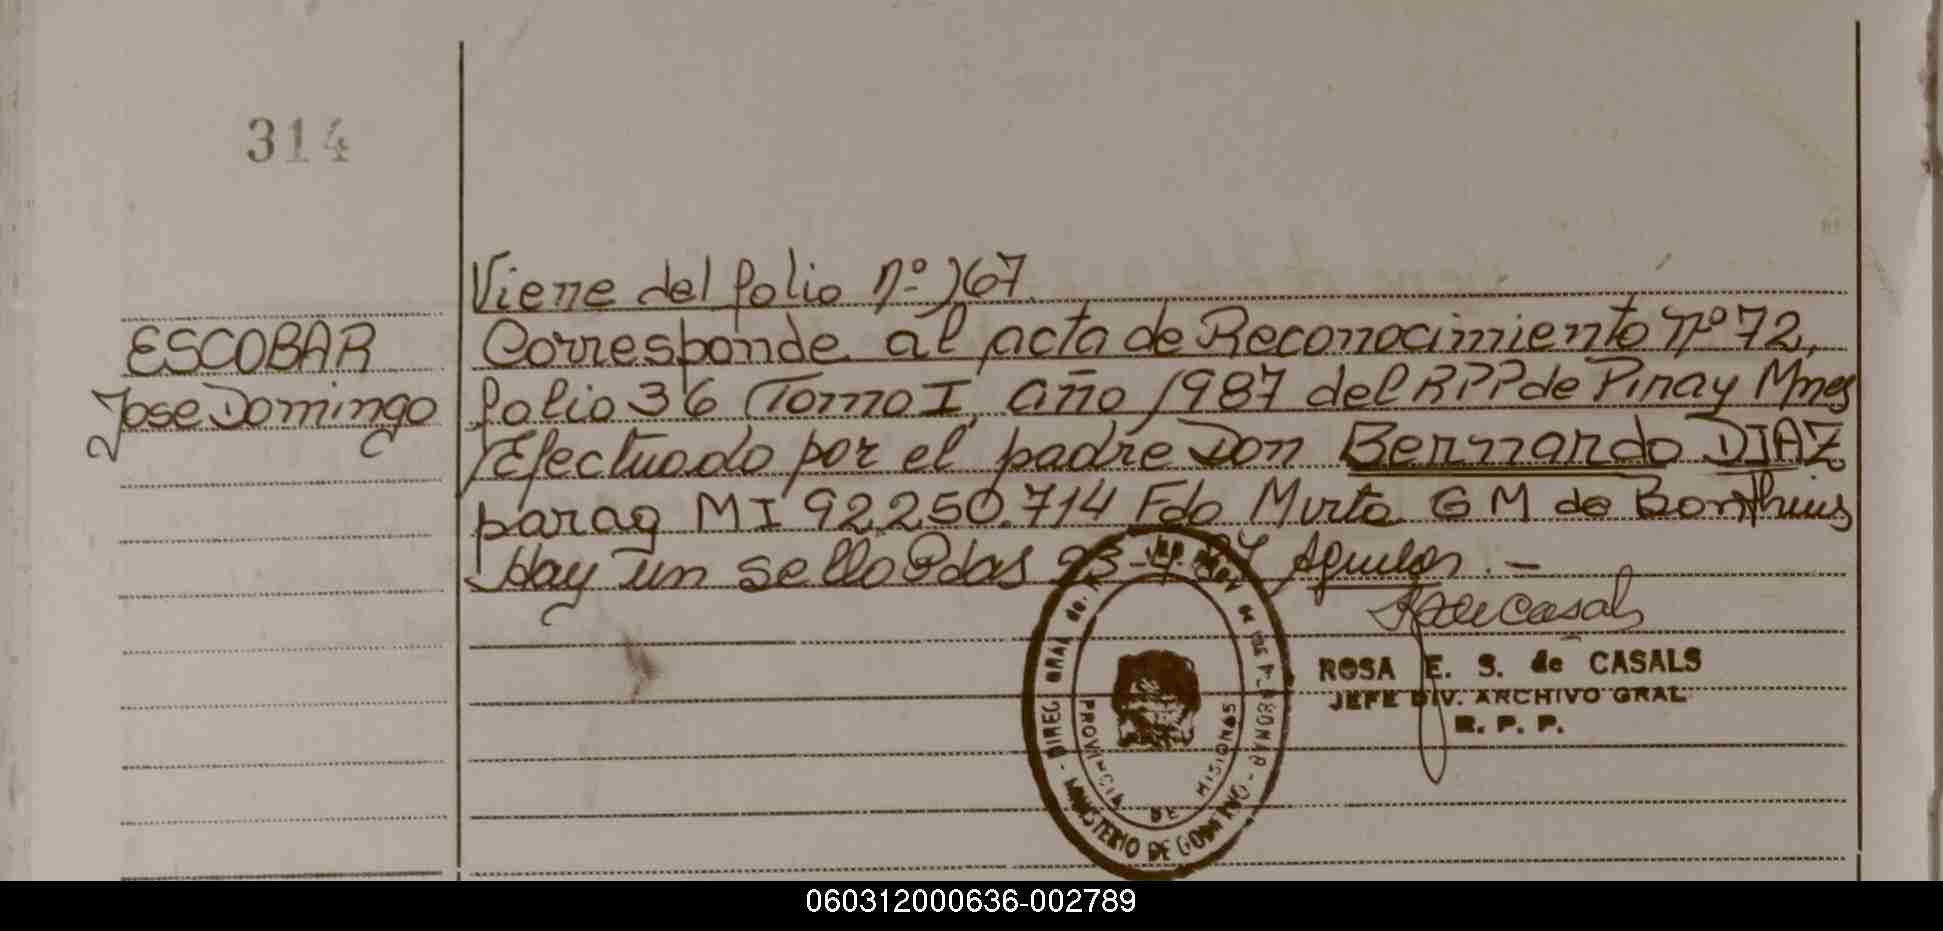 314
Viene del folio nº 167
ESCOBAR
Jose Domingo
Corresponde al acta de Reconocimiento nº 72,
folio 36 Tomo I, año 1987 del RPP de Pinay Mnes
Efectuado por el padre Don Bernnardo DIAZ
parag MI 92.250.714 Fdo Mirta G M de Bonthuis
Hay un sello Pdas 23
ROSA E. S. de CASALS
JEFE DIV. ARCHIVO GRAL
R. P. P.
PROVINCIA DE MISIONES
MINISTERIO DE GOBIERNO
060312000636-002789